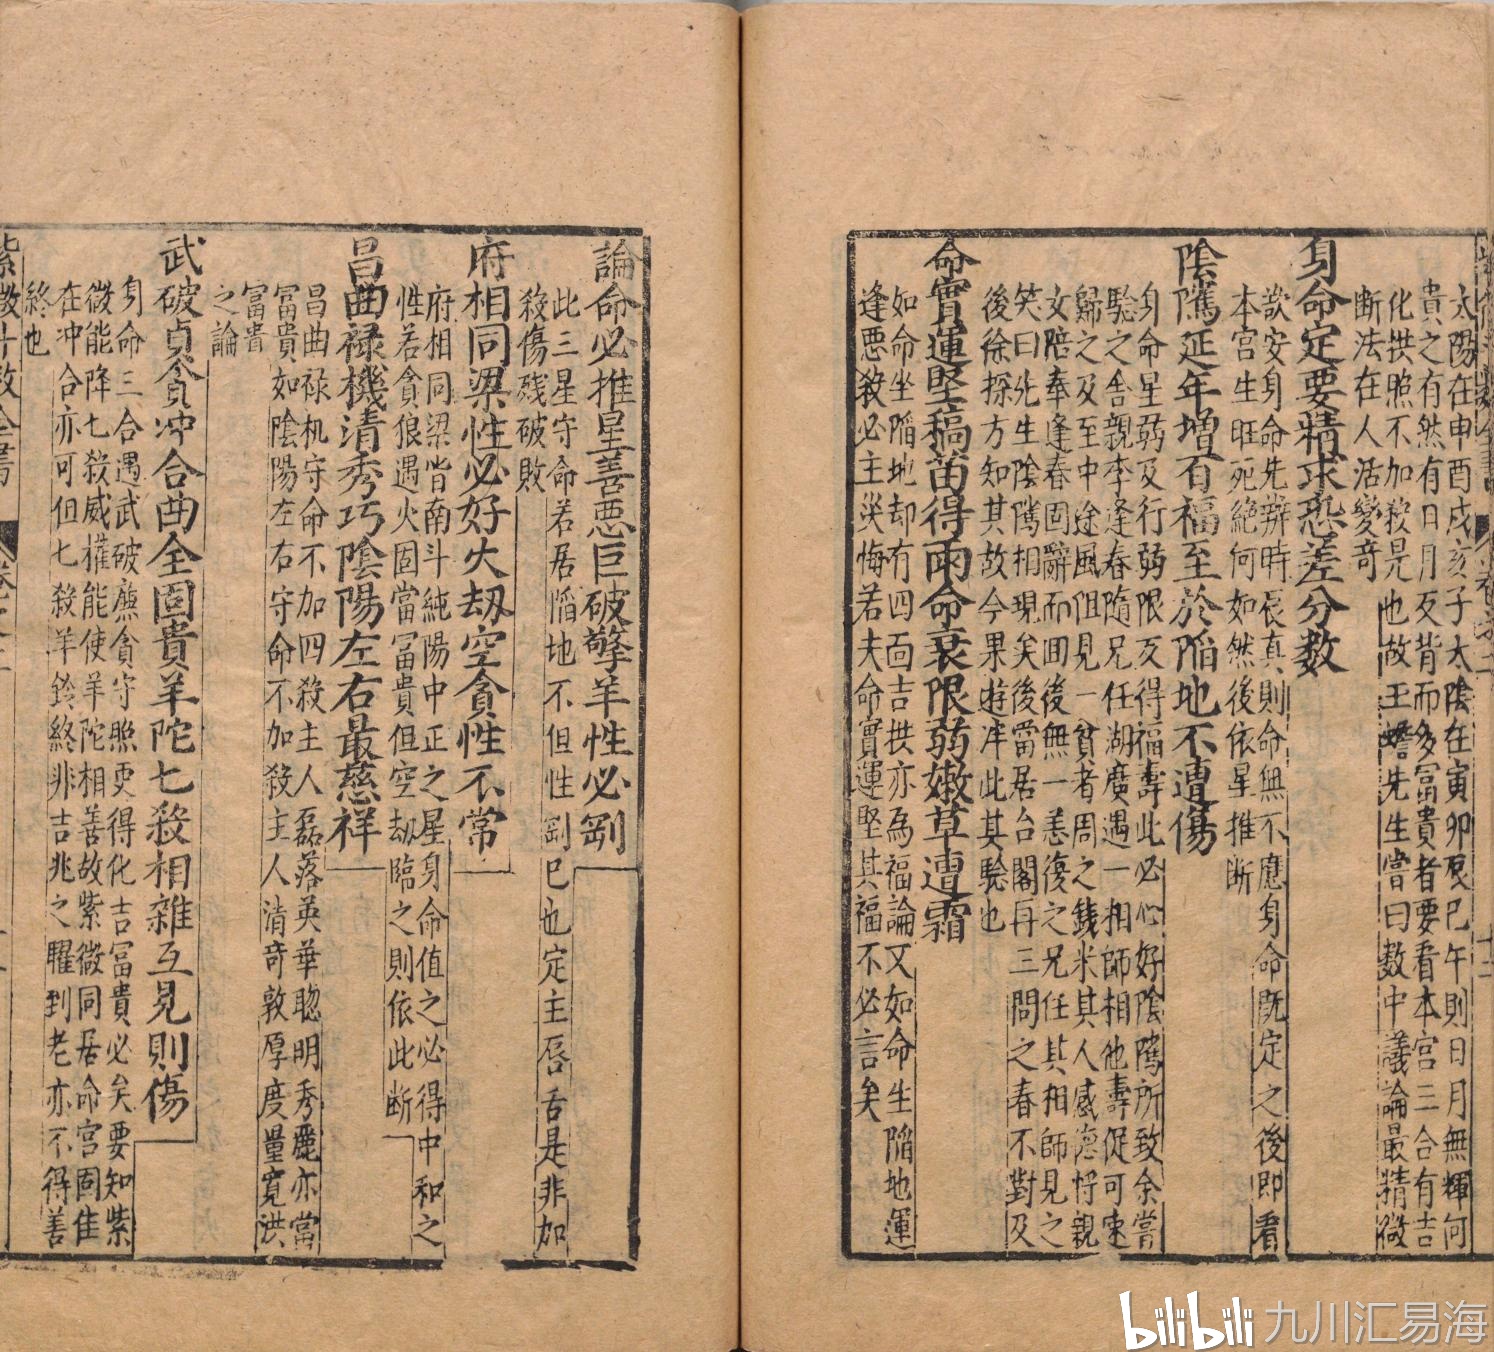 太陽在申酉戌亥子太陰在寅卯辰巳午則日月無輝何
貴之有然有日月反背而多富貴者要看本宮三合有吉
化拱照不加殺是也故王蟾先生嘗曰数中議論最精微
断法在人活變奇
身命定要精求恐差分数
欲安身命先辨時辰真則命無不應身命既定之後即看
本宮生旺死絶何如然後依星推断
陰隲延年增百福至於陷地不遭傷
身命星弱及行弱限反得福壽此必心好陰隲所致余嘗
驗之舍親李逢春隨兄任湖廣遇一相師相他壽促可速
歸之及至中途風阻見一貧者周之錢米其人感德将親
女陪奉逢春固辭而囬後無一恙復之兄任其相師見之
笑曰先生陰隲相現矣後當居台閣再三問之春不對及
後徐探方知其故今果遊泮此其驗也
命實運堅稿苗得雨命衰限弱嫩草遭霜
如命坐陷地却有四面吉拱亦為福論又如命生陷地運
逢悪殺必主災悔若夫命實運堅其福不必言矣
論命必推星善悪巨破擎羊性必剛
此三星守命若居陷地不但性剛已也定主唇舌是非加
殺傷残破敗
府相同梁性必好火刼空貪性不常
府相同梁皆南斗純陽中正之星身命值之必得中和之
性若貪狼遇火固當富貴但空刼臨之則依此断
昌曲禄機清秀巧陰陽左右最慈祥
昌曲禄机守命不加四殺主人磊落英華聰明秀麗亦當
富貴如陰陽左右守命不加殺主人清奇敦厚度量寬洪
富貴
之論
武破貞貪冲合曲全固貴羊陀七殺相雜互見則傷
身命三合遇武破廉貪守照更得化吉富貴必矣要知紫
微能降七殺威權能使羊陀相善故紫微同居命宮固佳
在冲合亦可但七殺羊鈴終非吉兆之曜到老亦不得善
終也
bilibili 九川汇易海